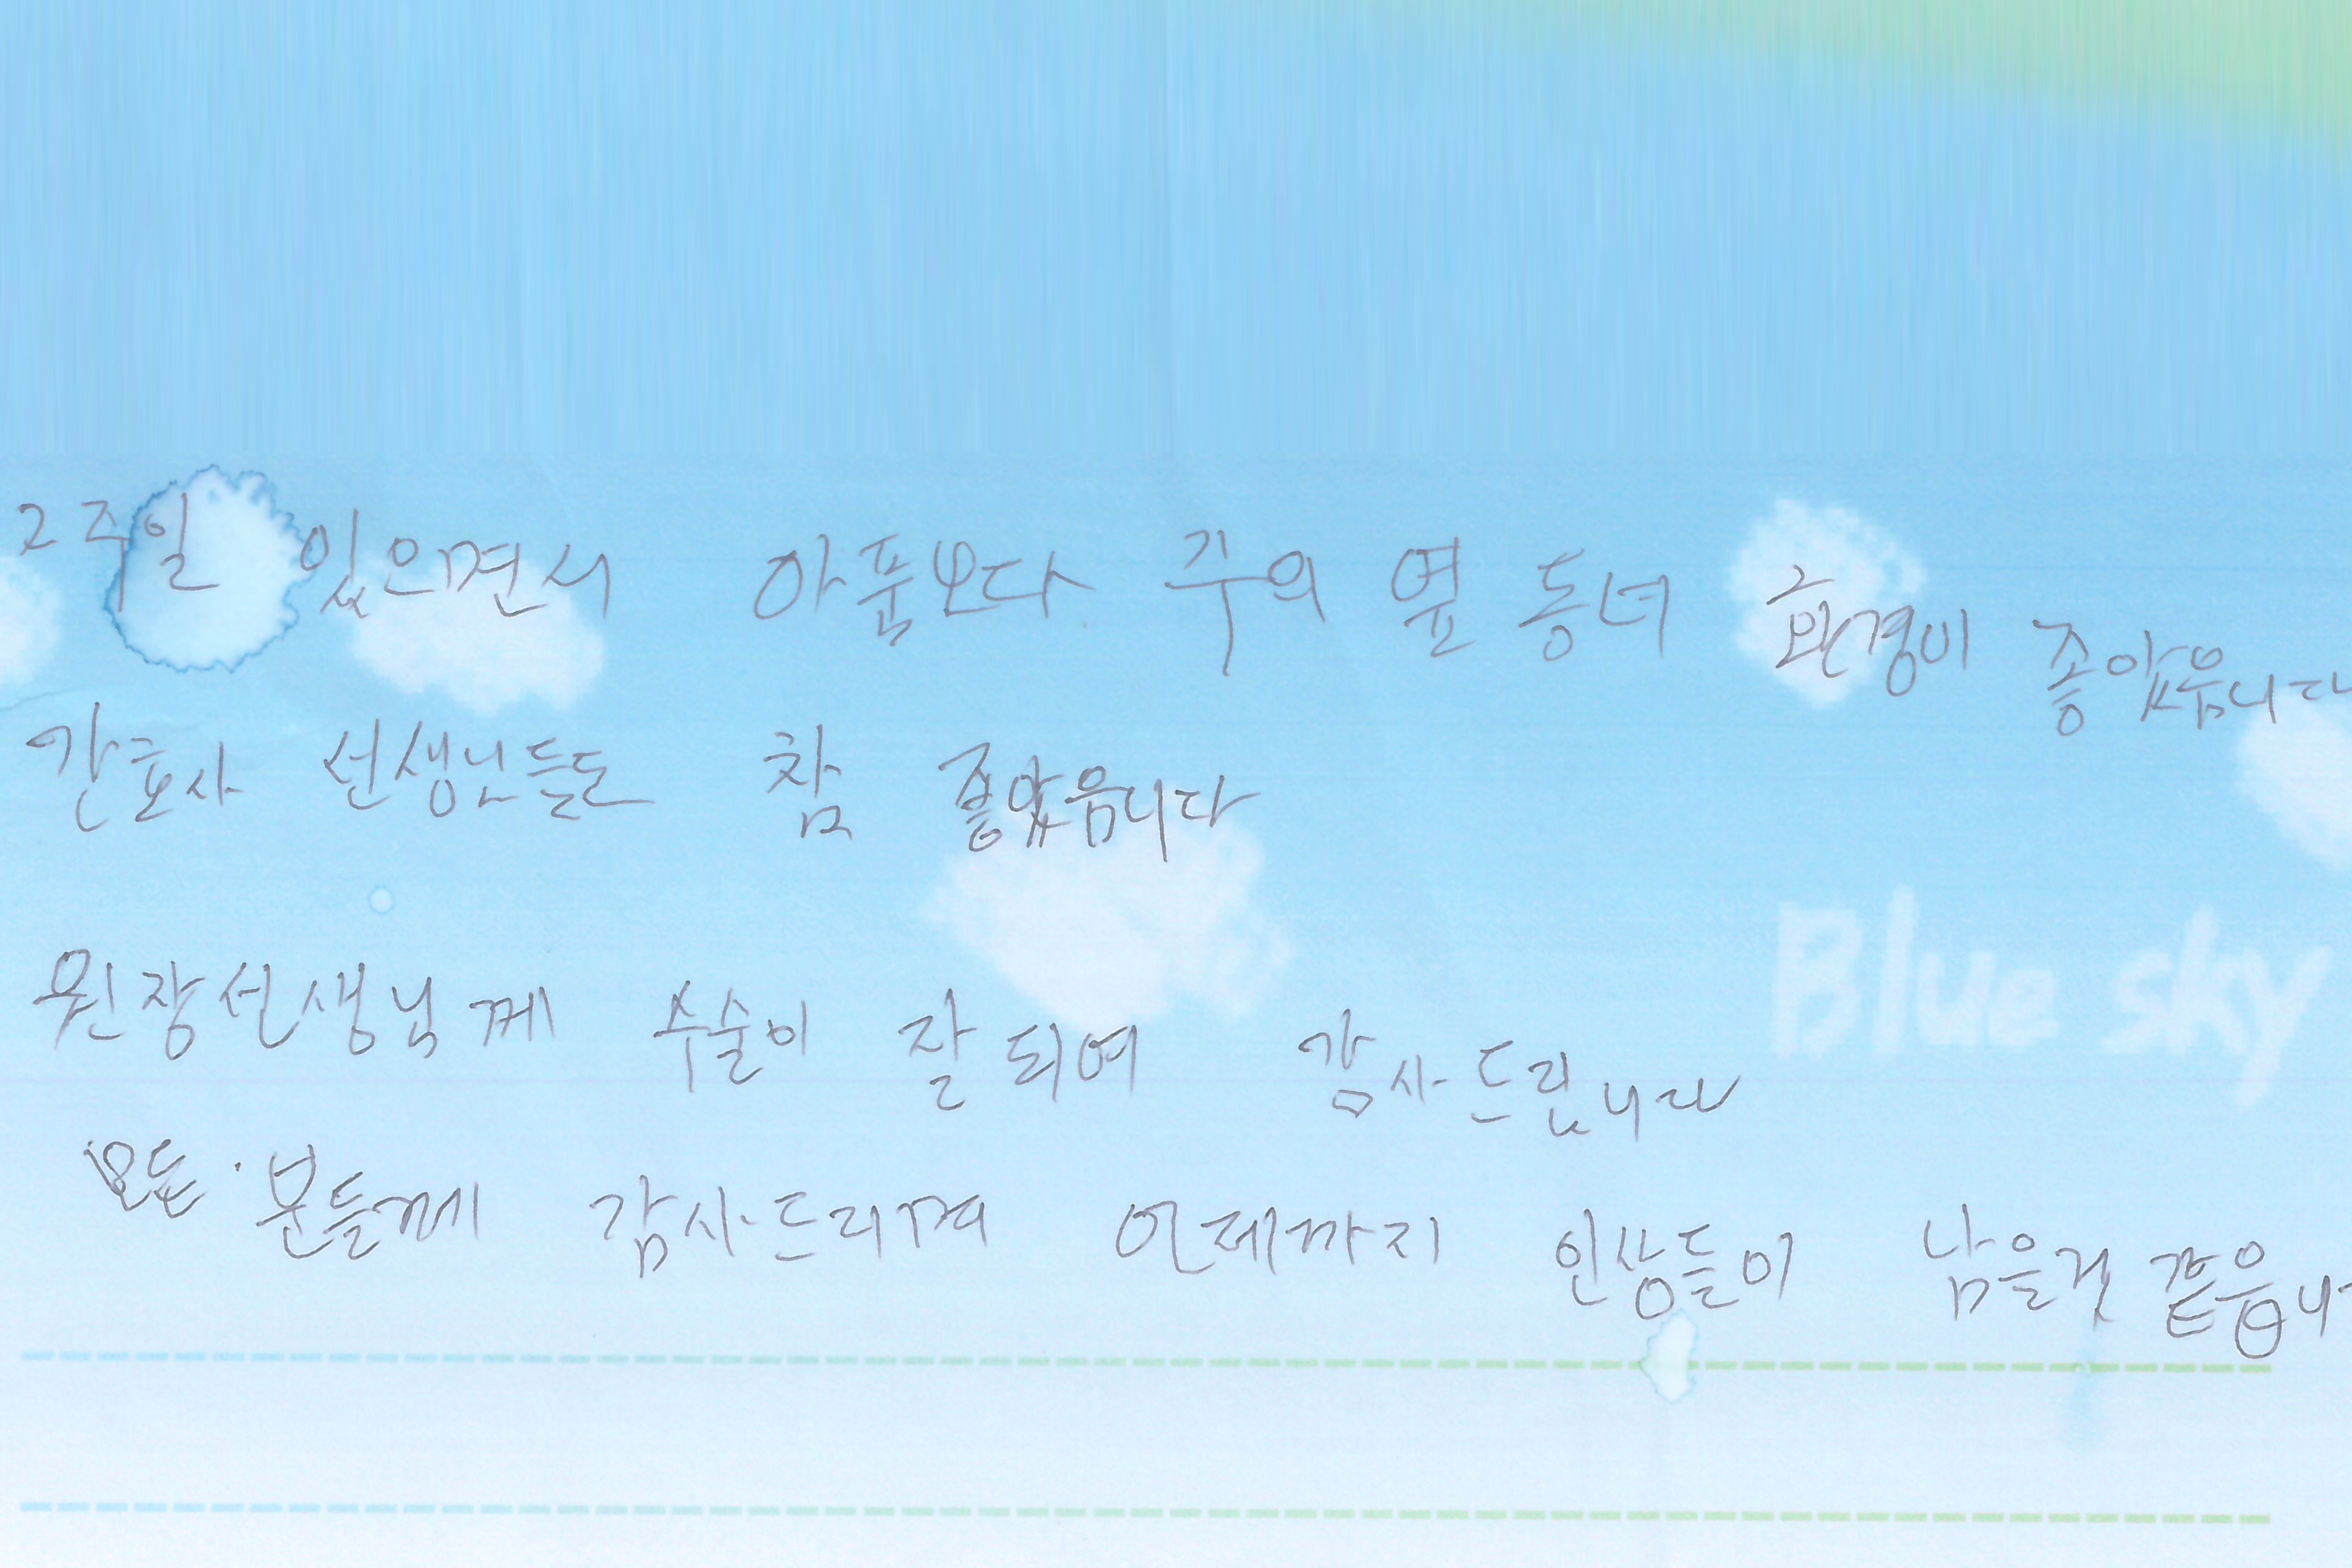 2주일 있으면서 아품보다 주의 옆 동녀 환경이 좋았읍니다
간호사 선생님들도 참 좋았읍니다
Blue sky
원장선생님께 수술이 잘 되여 감사드립니다
모든 분들께 감사드리며 언제까지 인상들이 남을것 같읍니